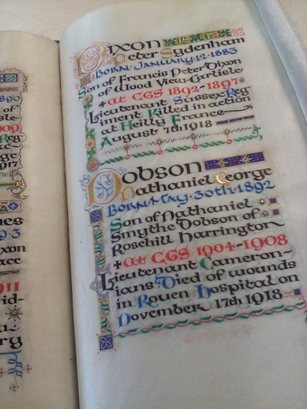 Dixon
Peter Sydenham
Born January 12 1883
Son of Francis Peter Dixon
of Wood View Carlisle
+at CGS 1892-1897+
Lieutenant Sussex Reg-
iment Killed in action
at Heilly France
August 7th 1918
Dobson
Nathaniel George
Born May 30th 1892
Son of Nathaniel
Smythe Dobson of
Rosehill Harrington
+at CGS 1904-1908
Lieutenant Cameron-
ians Died of wounds
in Rouen Hospital on
November 17th 1918